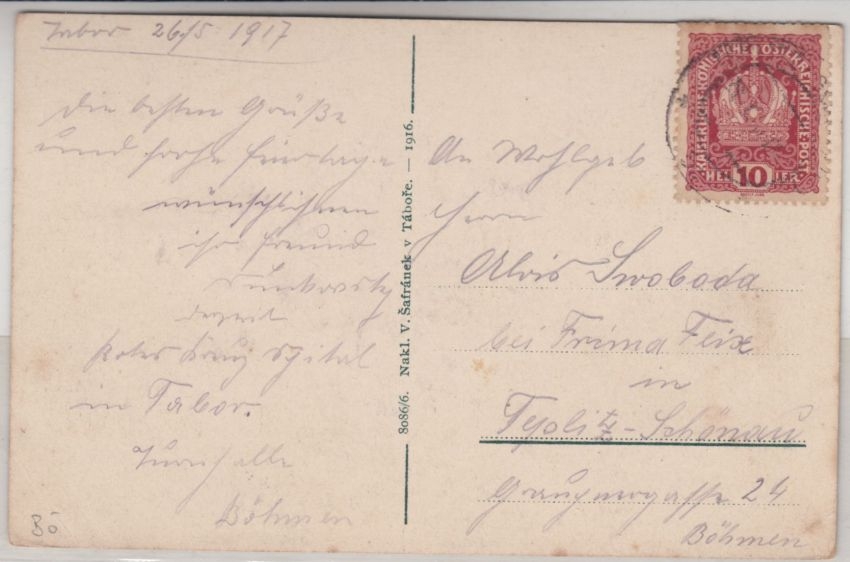 Tabor 26/5 1917
die besten Grüße
und frohe Feiertage
wünscht Ihnen
ihr Freund
derzeit
Rotes Kreuz Spital
in Tabor.
Turnhalle
Böhmen
Bö
8086/6. Nakl. V. Šafránek v Táboře. — 1916.
KAISERLICHE KÖNIGLICHE ÖSTERREICHISCHE POST
HELLER
10
An Wohlgeb
Herrn
Alois Swoboda
bei Firma Feix
in
Teplitz-Schönau
24
Böhmen